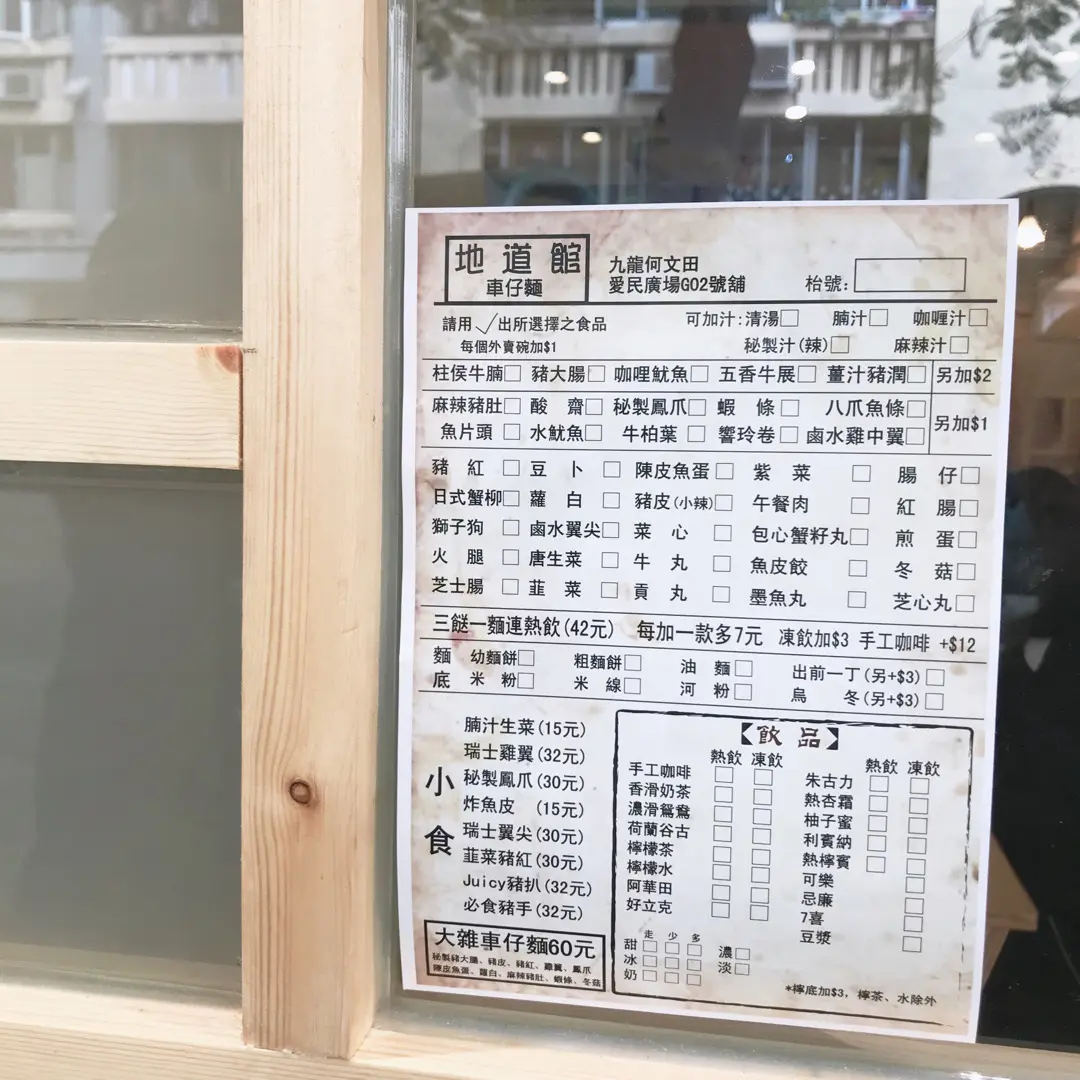 地道館
車仔麵
九龍何文田
愛民廣場G02號舖
枱號:
請用✓出所選擇之食品
每個外賣碗加$1
可加汁:清湯□ 腩汁□ 咖喱汁□
秘製汁(辣)□ 麻辣汁□
柱侯牛腩□ 豬大腸□ 咖哩魷魚□ 五香牛展□ 薑汁豬潤□ 另加$2
麻辣豬肚□ 酸齋□ 秘製鳳爪□ 蝦條□ 八爪魚條□ 另加$1
魚片頭□ 水魷魚□ 牛柏葉□ 響玲卷□ 鹵水雞中翼□
豬紅□ 豆卜□ 陳皮魚蛋□ 紫菜□ 腸仔□
日式蟹柳□ 蘿白□ 豬皮(小辣)□ 午餐肉□ 紅腸□
獅子狗□ 鹵水翼尖□ 菜心□ 包心蟹籽丸□ 煎蛋□
火腿□ 唐生菜□ 牛丸□ 魚皮餃□ 冬菇□
芝士腸□ 韮菜□ 貢丸□ 墨魚丸□ 芝心丸□
三餸一麵連熱飲(42元) 每加一款多7元 凍飲加$3 手工咖啡 +$12
麵底
幼麵餅□ 粗麵餅□ 油麵□ 出前一丁(另+$3)□
米粉□ 米線□ 河粉□ 烏冬(另+$3)□
小食
腩汁生菜(15元)
瑞士雞翼(32元)
秘製鳳爪(30元)
炸魚皮 (15元)
瑞士翼尖(30元)
韮菜豬紅(30元)
Juicy豬扒(32元)
必食豬手(32元)
大雜車仔麵60元
秘製豬大腸、豬皮、豬紅、雞翼、鳳爪
陳皮魚蛋、蘿白、麻辣豬肚、蝦條、冬菇
【飲品】
熱飲 凍飲
手工咖啡□ □
香滑奶茶□ □
濃滑鴛鴦□ □
荷蘭谷古□ □
檸檬茶□ □
檸檬水□ □
阿華田□ □
好立克□ □
熱飲 凍飲
朱古力□ □
熱杏霜□ □
柚子蜜□ □
利賓納□ □
熱檸賓□ □
可樂□
忌廉□
7喜□
豆漿□
走 少 多
甜□□□ 濃□
冰□□□ 淡□
奶□□□
*檸底加$3, 檸茶、水除外